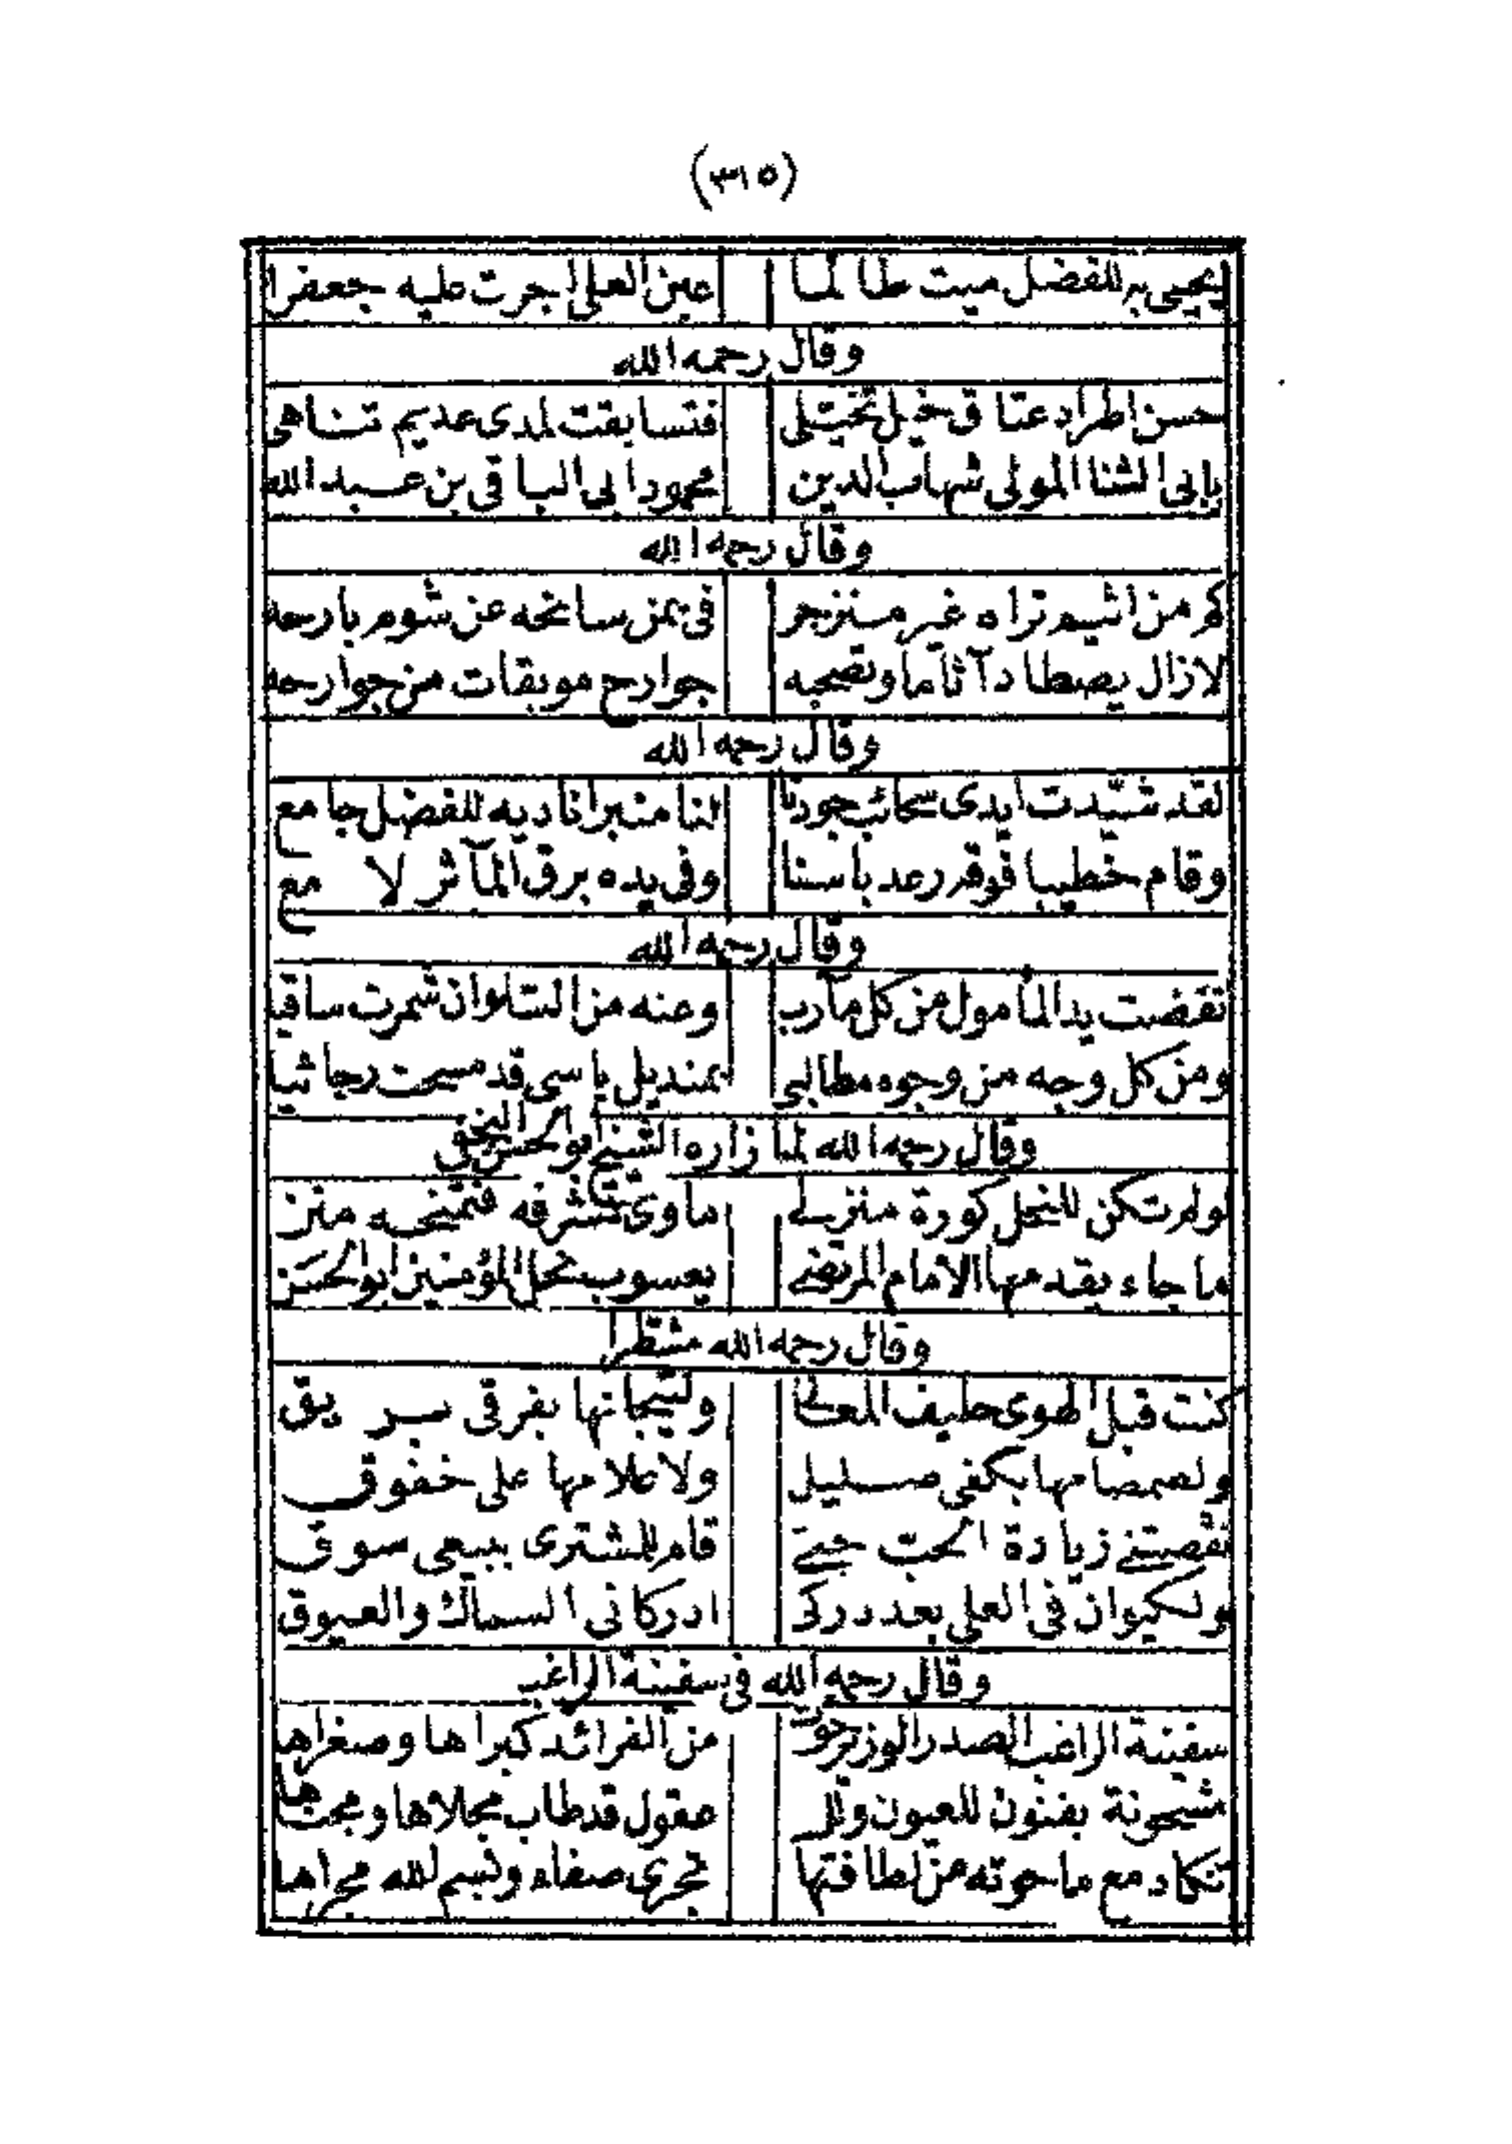 (٣١٥)
ليحيى به للفضل ميت طالما عين العلى اجرت عليه جعفرا
وقال رحمه الله
حسن اطراد عتاق خيل تخيلى فتسابقت لمدى عديم تناهى
بابى الثنا المولى شهاب الدين محمود ابى الباقى بن عبد الله
وقال رحمه الله
كم من اثيم تراه غير منزجر فى يمن سانحه عن شوم بارحه
لازال يصطاد آثاما وتصحبه جوارح موبقات من جوارحه
وقال رحمه الله
لقد شيدت ايدى سحائب جودنا لنا منبرا ناديه للفضل جامع
وقام خطيبا فوقه رعد باسنا وفى يده برق المآثر لا مع
وقال رحمه الله
نفضت يد المأمول من كل مآرب وعنه من السلوان شمرت ساقيا
ومن كل وجه من وجوه مطالبى بمنديل ياسى قد مسحت رجائيا
وقال رحمه الله لما زاره الشيخ ابو الحسن النجفى
لولم تكن للنحل كورة منزلى ماوى تشرفه فتمنحه منن
ما جاء يقدمها الامام المرتضى يعسوب نحل المؤمنين ابو الحسن
وقال رحمه الله مشطرا
كنت قبل الهوى حليف المعالى ولتيجانها بفرقى بريق
ولصمصامها بكفى صليل ولاعلامها على خفوق
نقصتنى زيادة الحب حتى قام للمشترى ببيعى سوق
ولكيوان فى العلى بعد دركى ادركانى السماك والعيوق
وقال رحمه الله فى سفينة الراغب
سفينة الراغب الصدر الوزير حوت من الفرائد كبراها وصغراها
مشحونة بفنون للعيون وللـ ـعقول قد طاب مجلاها ومجناها
تكاد مع ما حوته من لطافتها تجرى صفاء وبسم الله مجراها